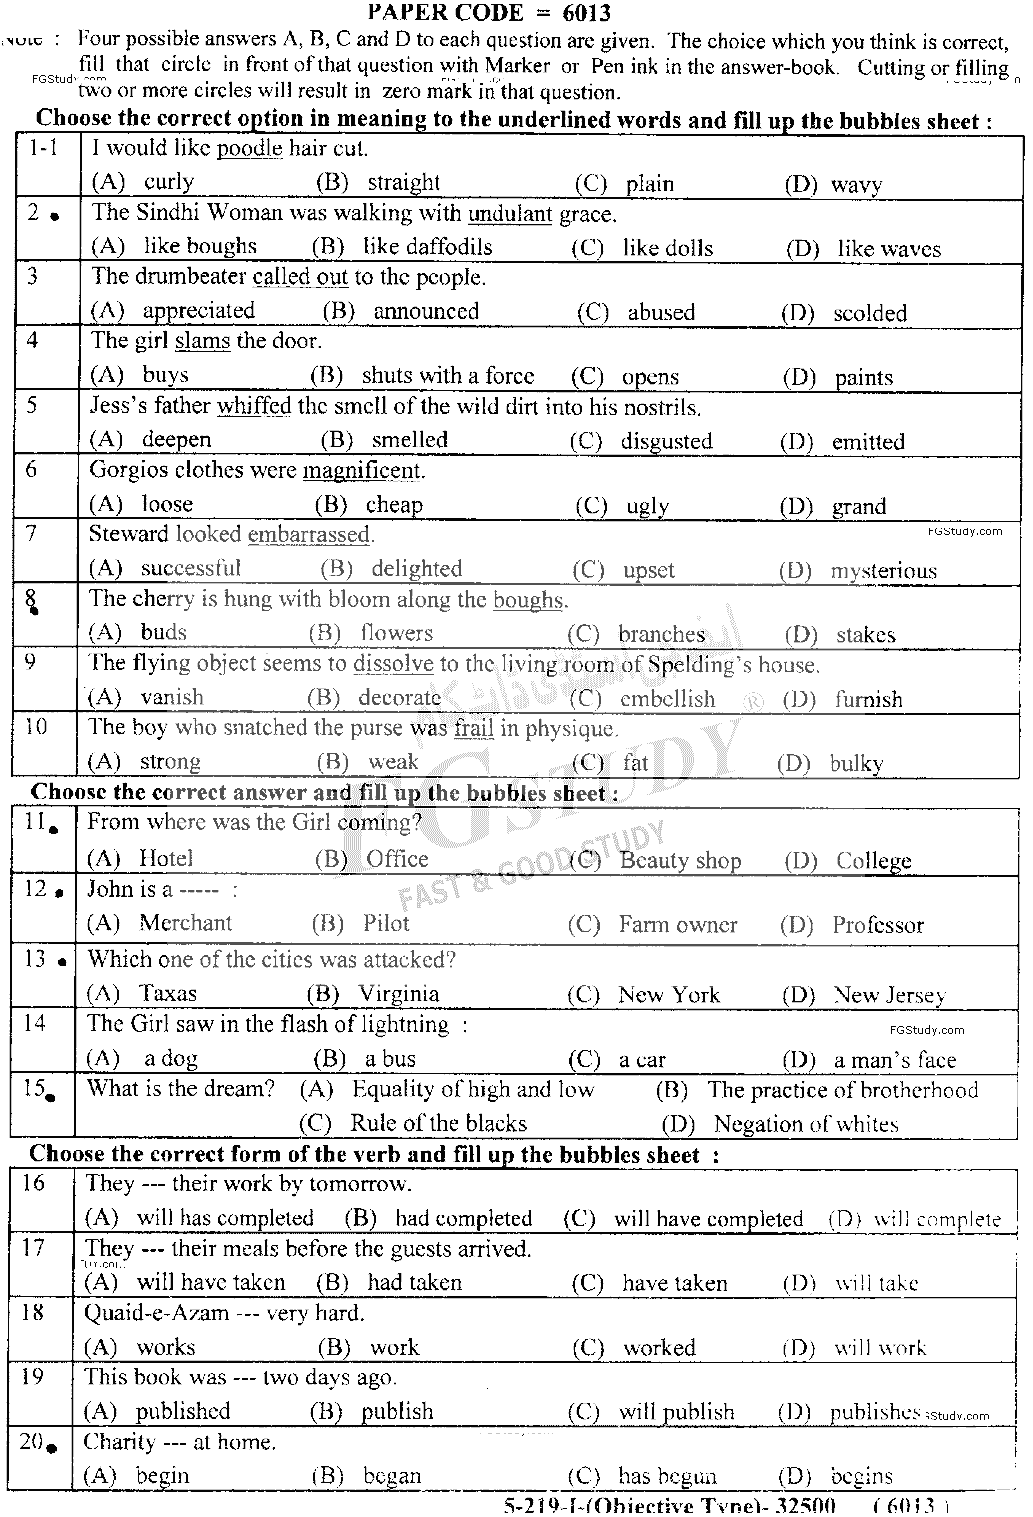 PAPER CODE = 6013
Note : Four possible answers A, B, C and D to each question are given. The choice which you think is correct,
fill that circle in front of that question with Marker or Pen ink in the answer-book. Cutting or filling
FGStudy.com
two or more circles will result in zero mark in that question.
Choose the correct option in meaning to the underlined words and fill up the bubbles sheet :
1-1 I would like poodle hair cut.
(A) curly (B) straight (C) plain (D) wavy
2 The Sindhi Woman was walking with undulant grace.
(A) like boughs (B) like daffodils (C) like dolls (D) like waves
3 The drumbeater called out to the people.
(A) appreciated (B) announced (C) abused (D) scolded
4 The girl slams the door.
(A) buys (B) shuts with a force (C) opens (D) paints
5 Jess's father whiffed the smell of the wild dirt into his nostrils.
(A) deepen (B) smelled (C) disgusted (D) emitted
6 Gorgios clothes were magnificent.
(A) loose (B) cheap (C) ugly (D) grand
7 Steward looked embarrassed.
FGStudy.com
(A) successful (B) delighted (C) upset (D) mysterious
8 The cherry is hung with bloom along the boughs.
(A) buds (B) flowers (C) branches (D) stakes
9 The flying object seems to dissolve to the living room of Spelding's house.
(A) vanish (B) decorate (C) embellish (D) furnish
10 The boy who snatched the purse was frail in physique.
(A) strong (B) weak (C) fat (D) bulky
FG STUDY ®
FAST & GOOD STUDY
Choose the correct answer and fill up the bubbles sheet :
11 From where was the Girl coming?
(A) Hotel (B) Office (C) Beauty shop (D) College
12 John is a ----- :
(A) Merchant (B) Pilot (C) Farm owner (D) Professor
13 Which one of the cities was attacked?
(A) Taxas (B) Virginia (C) New York (D) New Jersey
14 The Girl saw in the flash of lightning :
FGStudy.com
(A) a dog (B) a bus (C) a car (D) a man's face
15 What is the dream? (A) Equality of high and low (B) The practice of brotherhood
(C) Rule of the blacks (D) Negation of whites
Choose the correct form of the verb and fill up the bubbles sheet :
16 They --- their work by tomorrow.
(A) will has completed (B) had completed (C) will have completed (D) will complete
17 They --- their meals before the guests arrived.
(A) will have taken (B) had taken (C) have taken (D) will take
18 Quaid-e-Azam --- very hard.
(A) works (B) work (C) worked (D) will work
19 This book was --- two days ago.
(A) published (B) publish (C) will publish (D) publishes
20 Charity --- at home.
(A) begin (B) began (C) has begun (D) begins
5-219-I-(Objective Type)- 32500 ( 6013 )